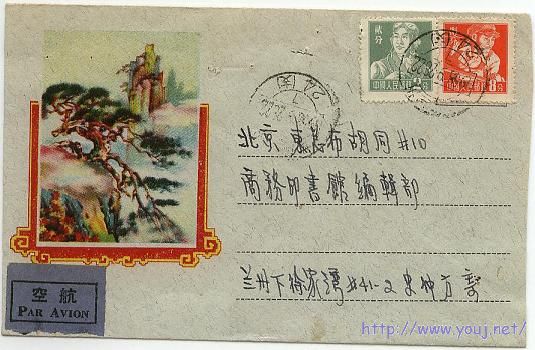 贰分
中国人民邮政
8分
中国人民邮政
北京東总布胡同#10
商務印書館編輯部
兰州下徐家湾#41-2 史仲方寄
空航
PAR AVION
http://www.youj.net/